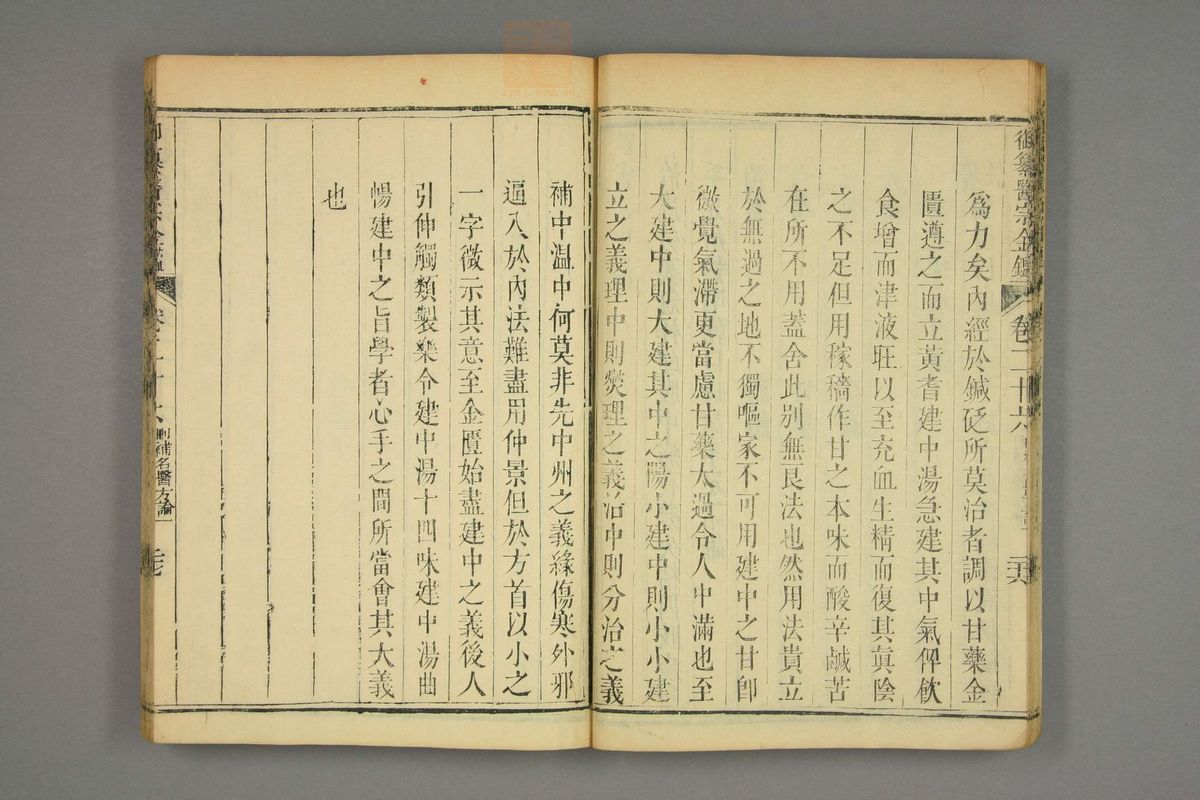 御纂醫宗金鑑 卷二十六
為力矣內經於鍼砭所莫治者調以甘藥金
匱遵之而立黃耆建中湯急建其中氣俾飲
食增而津液旺以至充血生精而復其眞陰
之不足但用稼穡作甘之本味而酸辛鹹苦
在所不用蓋舍此別無良法也然用法貴立
於無過之地不獨嘔家不可用建中之甘卽
微覺氣滯更當慮甘藥太過令人中滿也至
大建中則大建其中之陽小建中則小小建
立之義理中則爕理之義治中則分治之義
補中溫中何莫非先中州之義緣傷寒外邪
逼入於內法難盡用仲景但於方首以小之
一字微示其意至金匱始盡建中之義後人
引伸觸類製樂令建中湯十四味建中湯曲
暢建中之旨學者心手之間所當會其大義
也
刪補名醫方論一